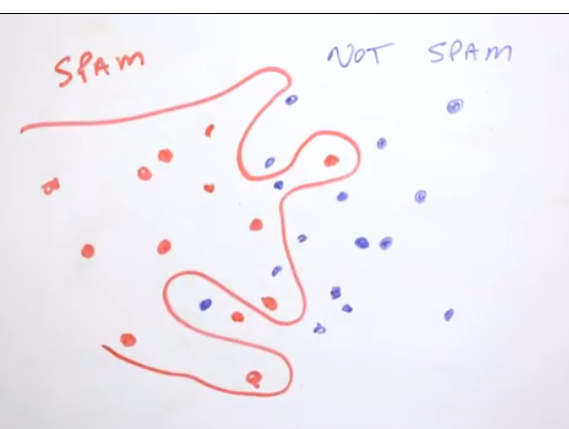 SPAM
NOT SPAM